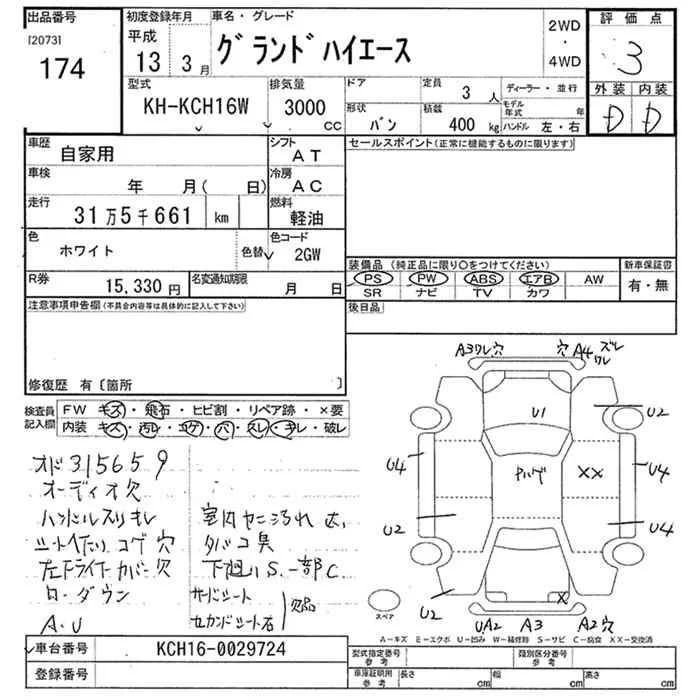 出品番号
[2073]
174
初度登録年月
平成
13 3月
車名・グレード
グランドハイエース
2WD
・
4WD
評価点
3
外装 内装
D D
型式
KH-KCH16W
排気量
3000
CC
ドア
定員
3人
形状
バン
積載
400 kg
ディーラー・並行
モデル年式 年
ハンドル 左・右
車歴
自家用
シフト
AT
車検
年 月( 日)
冷房
AC
走行
31万5千661 km
燃料
軽油
色
ホワイト
色替
色コード
2GW
R券
15,330円
名変通知期限
月 日
セールスポイント(正常に機能するものに限ります)
装備品 (純正品に限り○をつけてください)
新車保証書
PS PW ABS エアB AW
SR ナビ TV カワ
有・無
後日品
注意事項申告欄(不具合内容等は具体的に記入して下さい)
修復歴 有〔箇所 〕
検査員記入欄
FW キズ・飛石・ヒビ割・リペア跡・×要
内装 キズ・汚レ・コゲ・穴・スレ・キレ・破レ
オド315659
オーディオ欠
ハンドルスリキレ
シートヘたり コゲ 穴
左下ライナーカバー欠
ローダウン
A.U
室内ヤニ汚れ 大
タバコ臭
下廻りS.一部C
サードシート
セカンドシート右
欠品
A3ワレ穴
穴A4 ズレ
ワレ
U1
U2
U4
XX
U4
U2
U4
U2
X
U.A2
A3
A2穴
スペア
A-キズ E-エクボ U-凹み W-補修跡 S-サビ C-腐食 XX-交換済
車台番号
KCH16-0029724
登録番号
型式指定番号
参考
類別区分番号
参考
車庫証明用
参考
長さ cm
幅 cm
高さ cm